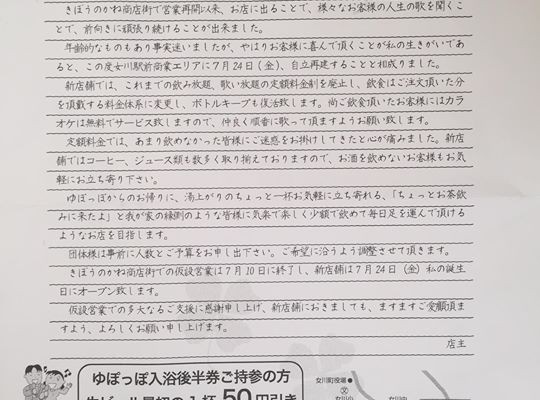 きぼうのかね商店街で営業再開以来、お店に出ることで、様々なお客様の人生の歌を聞くことで、前向きに頑張り続けることが出来ました。
年齢的なものもあり事実迷いましたが、やはりお客様に喜んで頂くことが私の生きがいであると、この度女川駅前商業エリアに７月２４日（金）、自立再建することと相成りました。
新店舗では、これまでの飲み放題、歌い放題の定額料金制を廃止し、飲食はご注文頂いた分を頂戴する料金体系に変更し、ボトルキープも復活致します。尚ご飲食頂いたお客様にはカラオケは無料でサービス致しますので、仲良く順番に歌って頂きますようお願い致します。
定額料金では、あまり飲めなかった皆様にご迷惑をお掛けしてきたと心が痛みました。新店舗ではコーヒー、ジュース類も数多く取り揃えておりますので、お酒を飲めないお客様もお気軽にお立ち寄り下さい。
ゆぽっぽからのお帰りに、湯上がりのちょっと一杯お気軽に立ち寄れる、「ちょっとお茶飲みに来たよ」と我が家の縁側のような皆様に気楽で楽しく少額で飲めて毎日足を運んで頂けるようなお店を目指します。
団体様は事前に人数とご予算をお申し出下さい。ご希望に沿うよう調整させて頂きます。
きぼうのかね商店街での仮設営業は７月１０日に終了し、新店舗は７月２４日（金）私の誕生日にオープン致します。
仮設営業での多大なるご支援に感謝申し上げ、新店舗におきましても、ますますご愛顧頂ますよう、よろしくお願い申し上げます。
店主
ゆぽっぽ入浴後半券ご持参の方
生ビール最初の１杯 50円引き
女川町役場
女川小
女川中